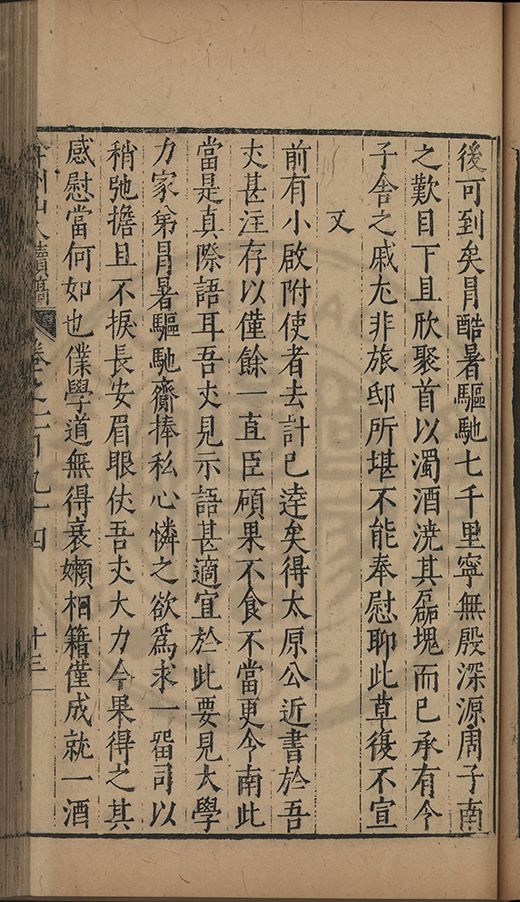 後可到矣冐酷暑驅馳七千里寧無殷深源周子南
之歎目下且欣聚首以濁酒澆其磊塊而已承有令
子舍之戚尤非旅邸所堪不能奉慰聊此草復不宣
又
前有小啟附使者去計已逹矣得太原公近書於吾
丈甚注存以僅餘一直臣碩果不食不當更令南此
當是真際語耳吾丈見示語甚適宜於此要見大學
力家弟冐暑驅馳齎捧私心憐之欲爲求一畱司以
稍弛擔且不捩長安眉眼仗吾丈大力今果得之其
感慰當何如也僕學道無得衰嬾相籍僅成就一酒
弇州山人續稿 卷之一百九十四 十三